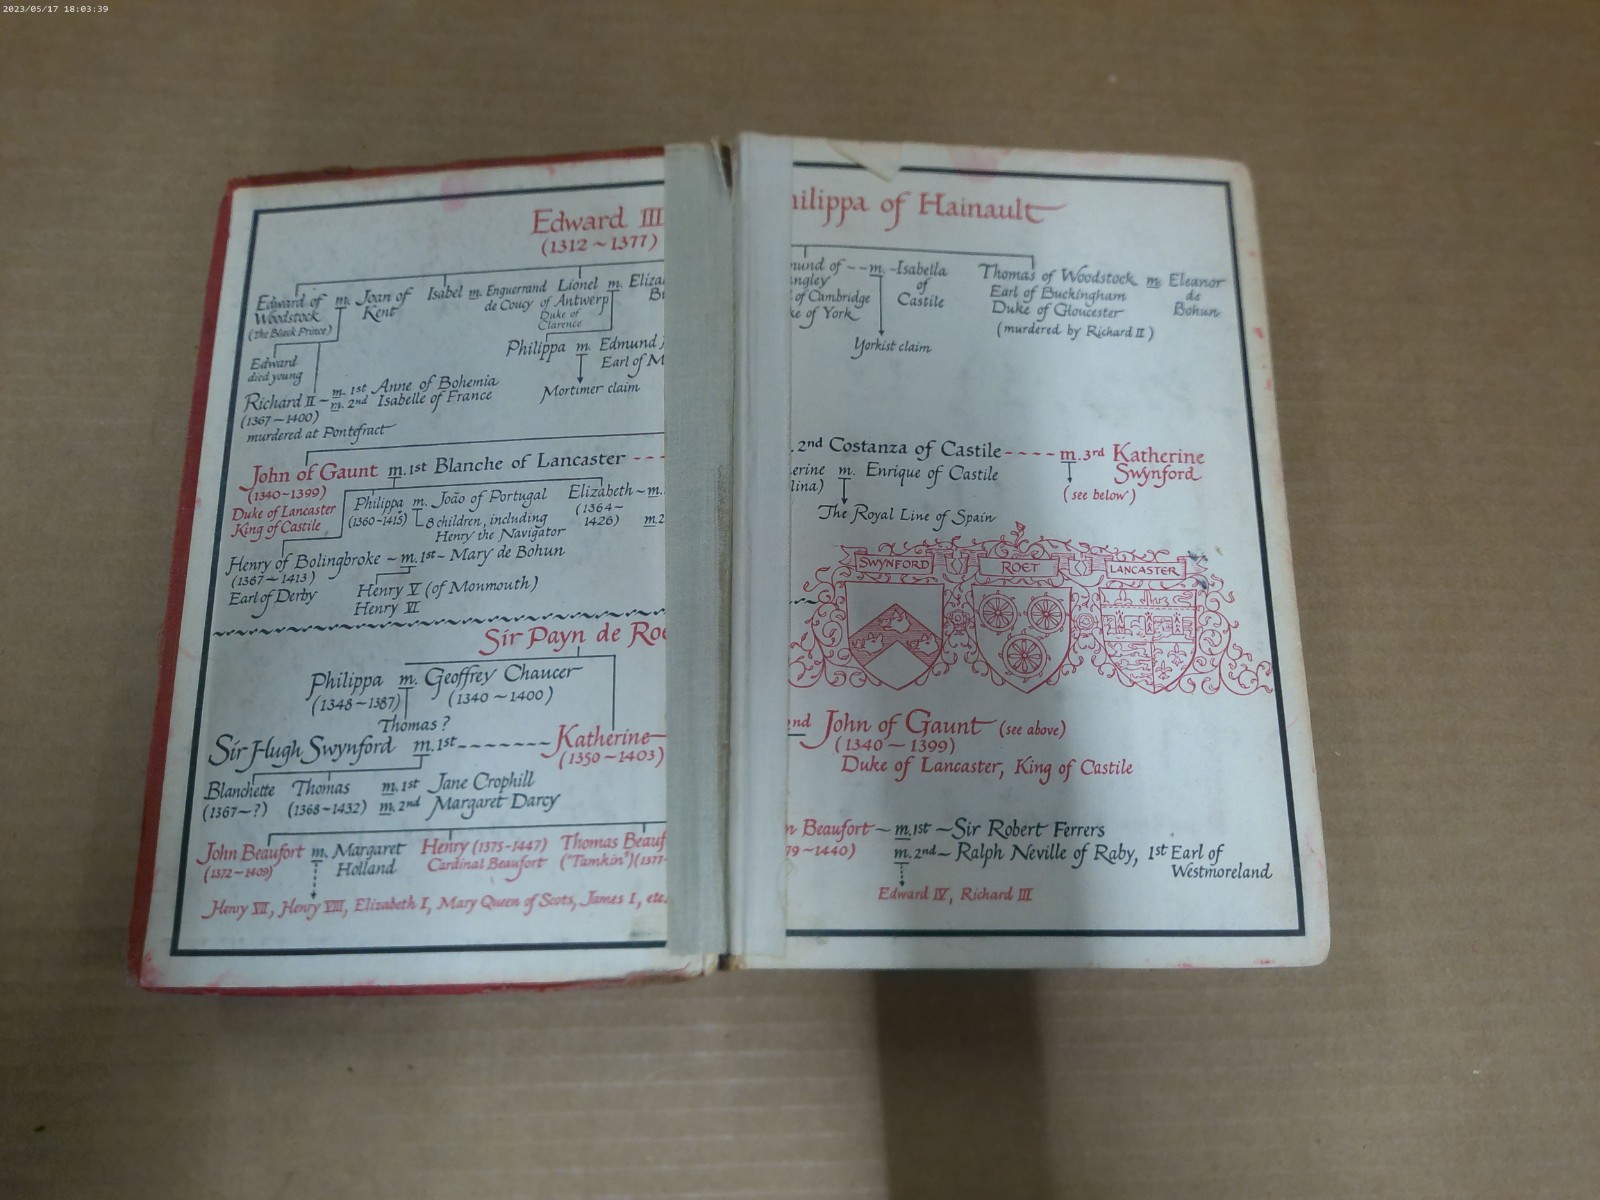 2023/05/17 18:03:39
Edward III
(1312~1377)
Edward of Woodstock m. Joan of Kent
(the Black Prince)
Isabel m. Enguerrand de Coucy
Lionel of Antwerp m.
Duke of Clarence
Edward
died young
Philippa m. Edmund
Earl of
Mortimer claim
Richard II ~ m. 1st Anne of Bohemia
m. 2nd Isabelle of France
(1367~1400)
murdered at Pontefract
John of Gaunt m. 1st Blanche of Lancaster ---
(1340~1399)
Duke of Lancaster
King of Castile
Philippa m. João of Portugal
(1360~1415)
8 children, including
Henry the Navigator
Elizabeth ~ m.
(1364~
1426)
m. 2
Henry of Bolingbroke ~ m. 1st ~ Mary de Bohun
(1367~1413)
Earl of Derby
Henry V (of Monmouth)
Henry VI
Sir Payn de
Philippa m. Geoffrey Chaucer
(1348~1387) (1340~1400)
Thomas?
Sir Hugh Swynford m. 1st ------- Katherine
(1350~1403)
Blanchette Thomas m. 1st Jane Crophill
(1367~?) (1368~1432) m. 2nd Margaret Darcy
John Beaufort m. Margaret Holland
(1372~1409)
Henry (1375~1447)
Cardinal Beaufort
Thomas
("Tamkin") (1377
Henry VII, Henry VIII, Elizabeth I, Mary Queen of Scots, James I, etc.
of Hainault
of --m.- Isabella of Castile
of Cambridge
of York
Yorkist claim
Thomas of Woodstock m. Eleanor de Bohun
Earl of Buckingham
Duke of Gloucester
(murdered by Richard II)
. 2nd Costanza of Castile ---- m. 3rd Katherine Swynford
(see below)
m. Enrique of Castile
The Royal Line of Spain
SWYNFORD ROET LANCASTER
nd John of Gaunt (see above)
(1340~1399)
Duke of Lancaster, King of Castile
Beaufort ~ m. 1st ~ Sir Robert Ferrers
79~1440) m. 2nd ~ Ralph Neville of Raby, 1st Earl of
Westmoreland
Edward IV, Richard III